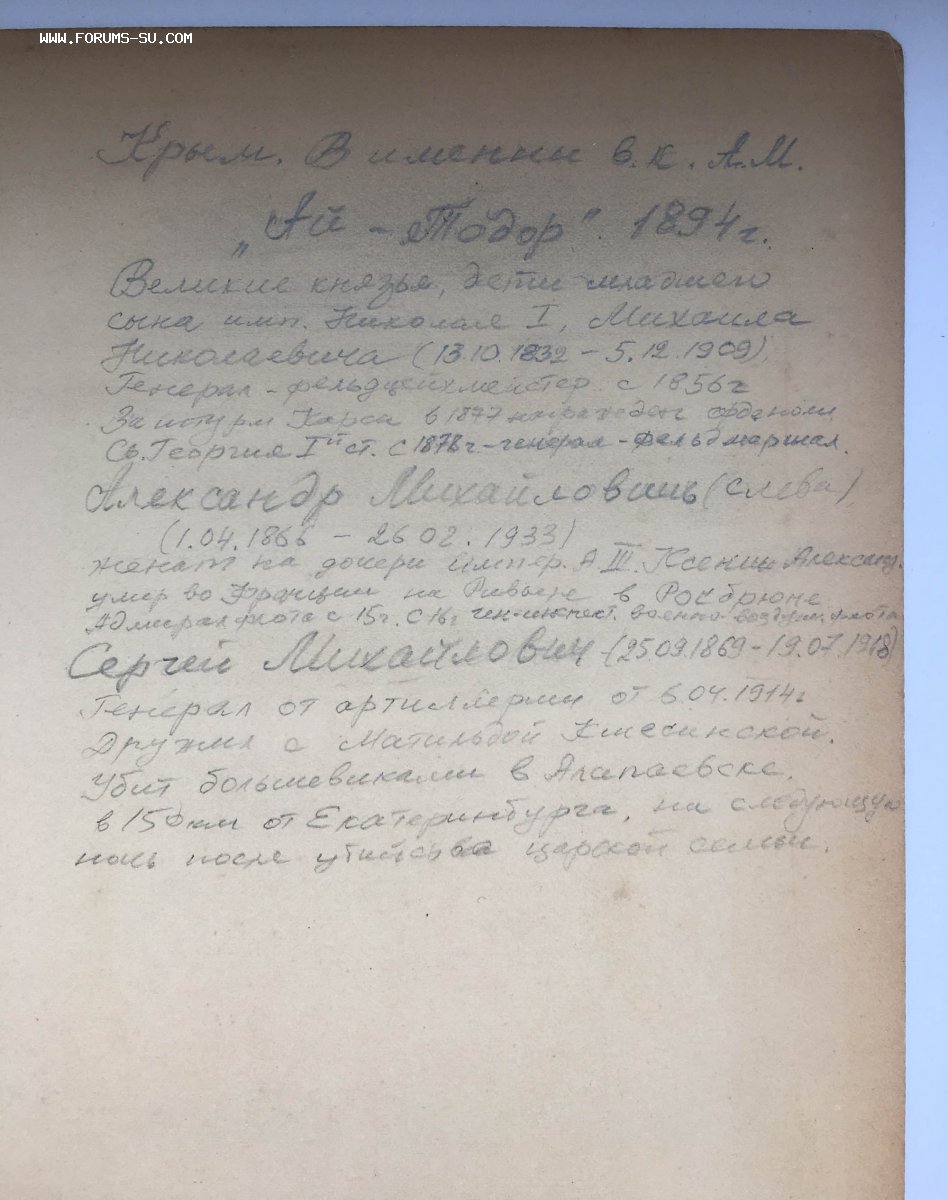 WWW.FORUMS-SU.COM
Крым. В имении в.к. А.М.
„Ай-Тодор". 1894 г.
Великие князья, дети младшего
сына имп. Николая I, Михаила
Николаевича (13.10.1832 – 5.12.1909)
Генерал-фельдцейхмейстер с 1856 г
За штурм Карса в 1877 награжден орденом
Св. Георгия I й ст. с 1878 г – генерал-фельдмаршал.
Александр Михайлович (слева)
(1.04.1866 – 26 02. 1933)
женат на дочери импер. А III. Ксении Александ.
умер во Франции на Ривьере в Рокбрюне
Адмирал флота с 15 г. С 16 г ген-инспект. военно-воздуш. флота
Сергей Михайлович (25.09.1869 – 19.07.1918)
Генерал от артиллерии от 6 04. 1914 г.
Дружил с Матильдой Кшесинской.
Убит большевиками в Алапаевске,
в 150 км от Екатеринбурга, на следующую
ночь после убийства царской семьи.